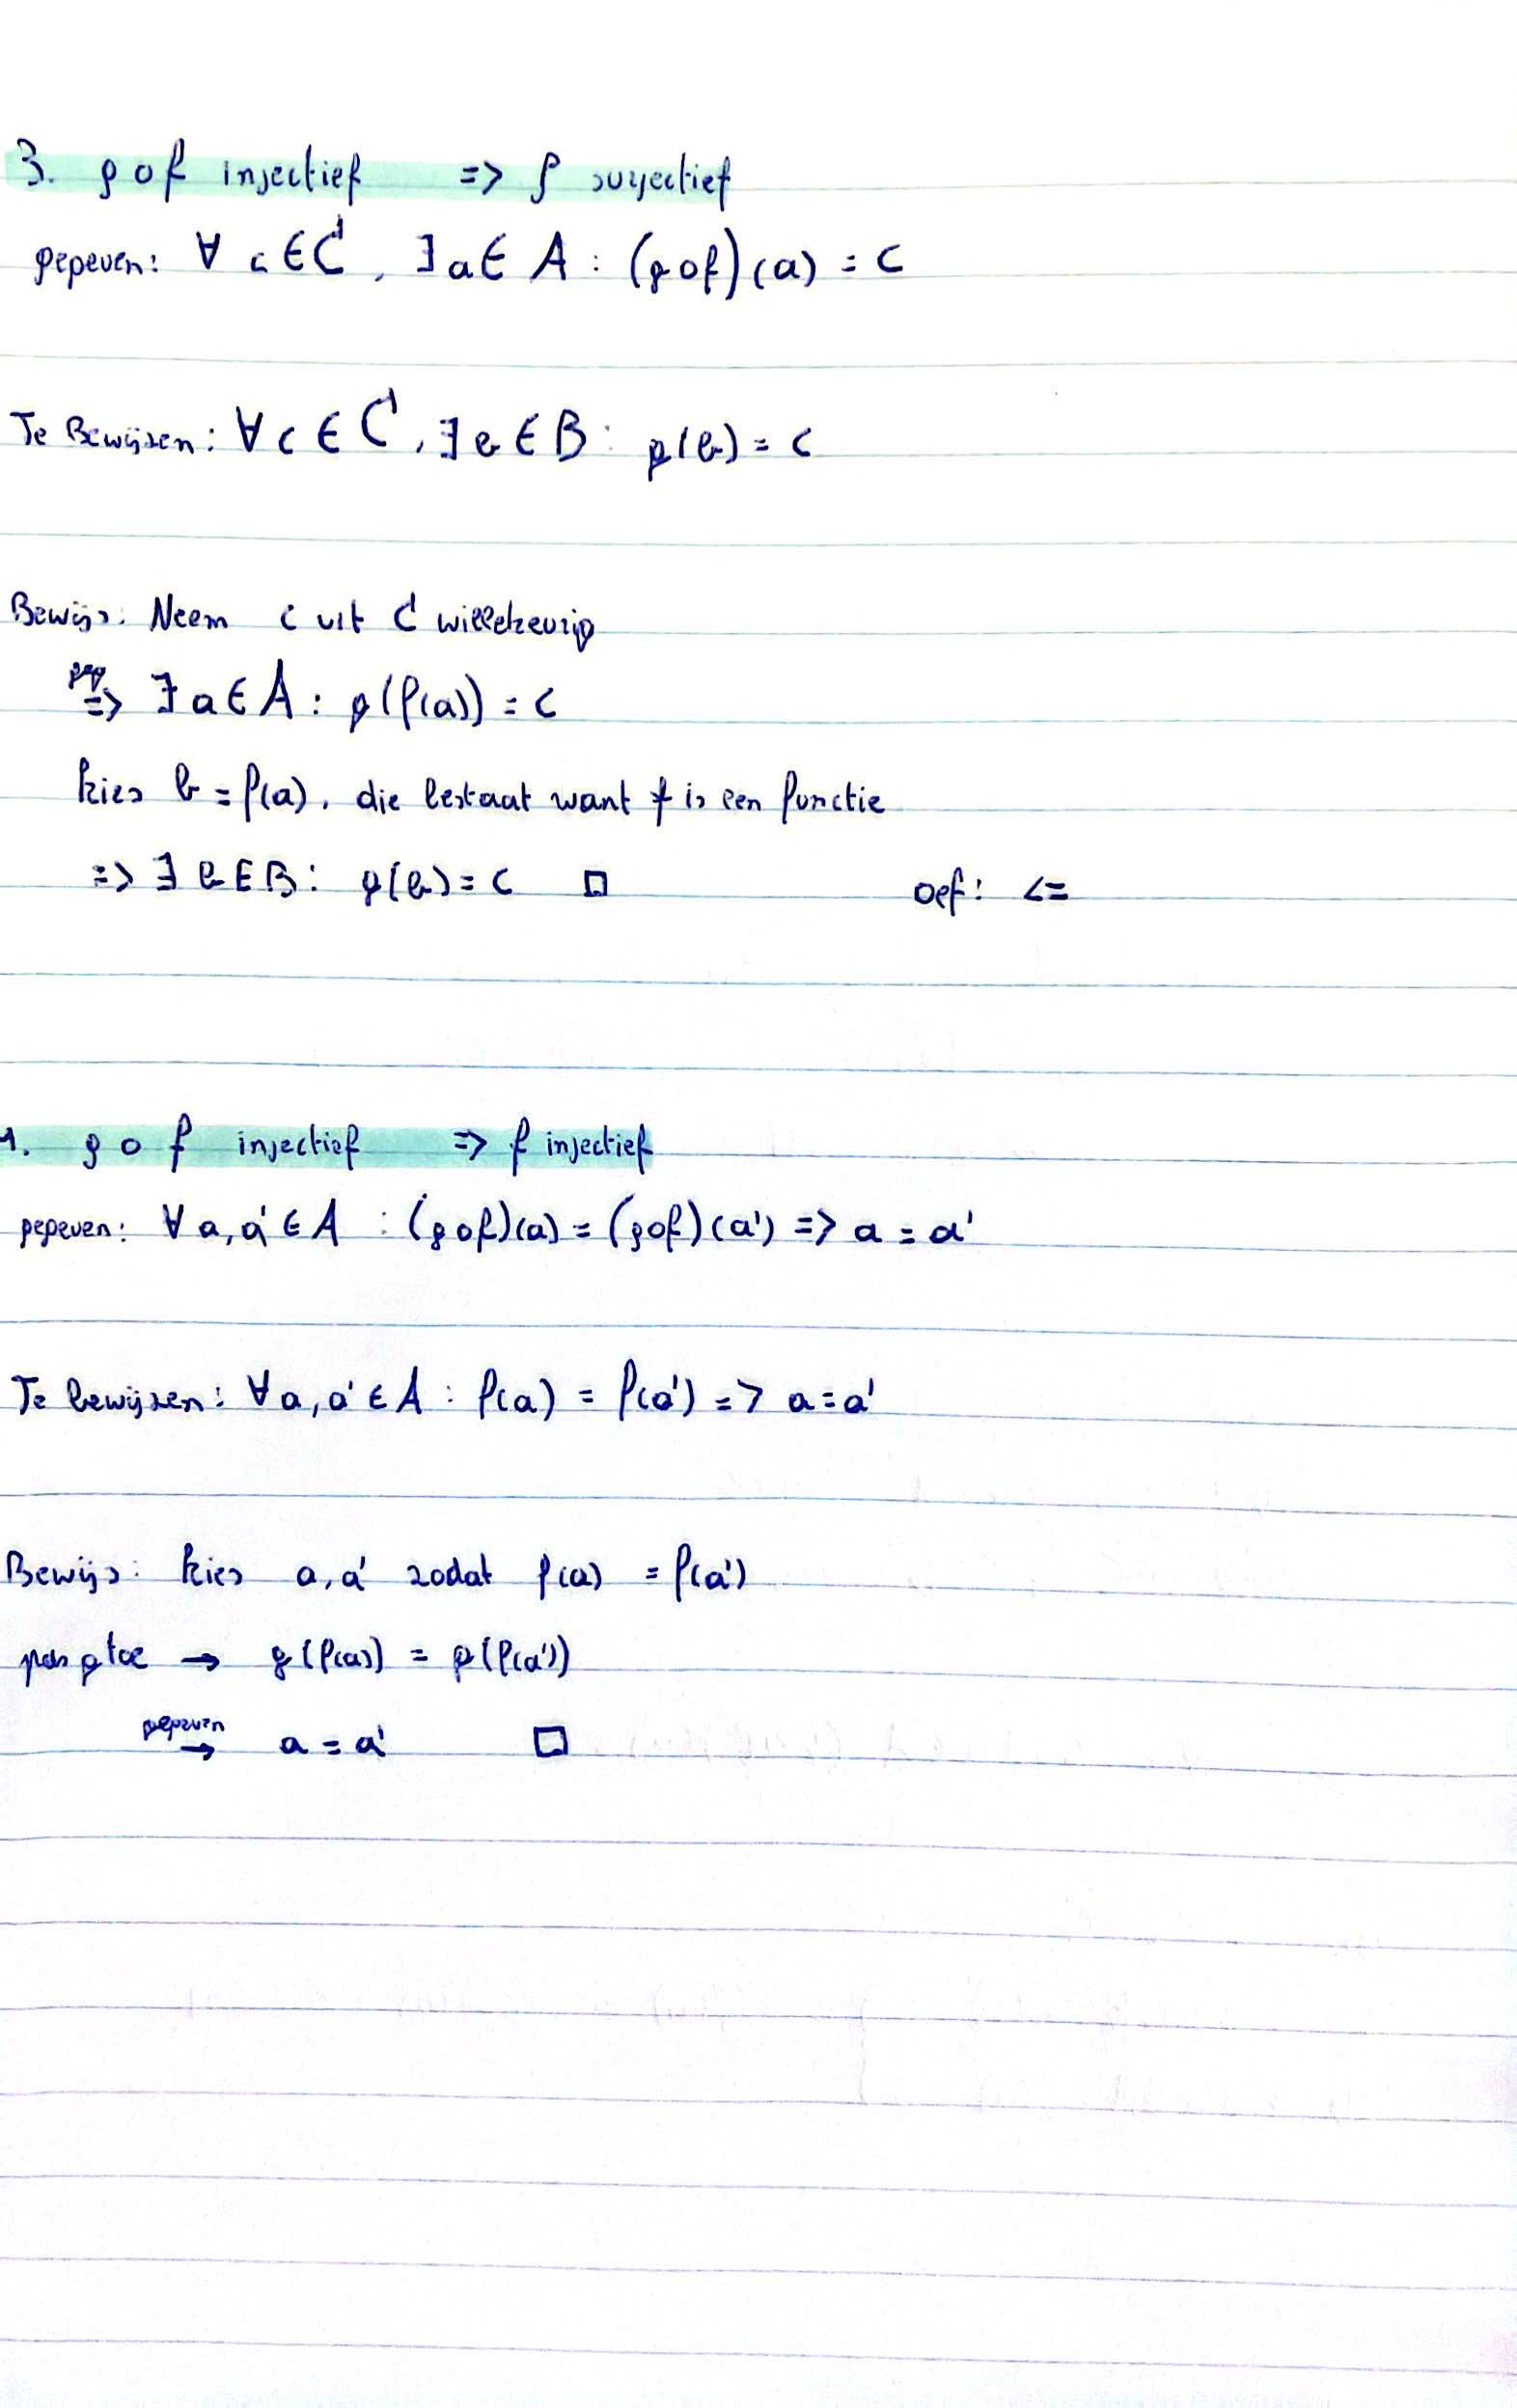 3. g o f injectief => f surjectief
gegeven: ∀ c ∈ C, ∃ a ∈ A : (g o f)(a) = c
Te Bewijzen: ∀ c ∈ C, ∃ b ∈ B : g(b) = c
Bewijs: Neem c uit C willekeurig
geg => ∃ a ∈ A : g(f(a)) = c
kies b = f(a), die bestaat want f is een functie
=> ∃ b ∈ B : g(b) = c □ oef: <=
1. g o f injectief => f injectief
gegeven: ∀ a, a' ∈ A : (g o f)(a) = (g o f)(a') => a = a'
Te bewijzen: ∀ a, a' ∈ A : f(a) = f(a') => a = a'
Bewijs: kies a, a' zodat f(a) = f(a')
pas g toe → g(f(a)) = g(f(a'))
gegeven → a = a' □